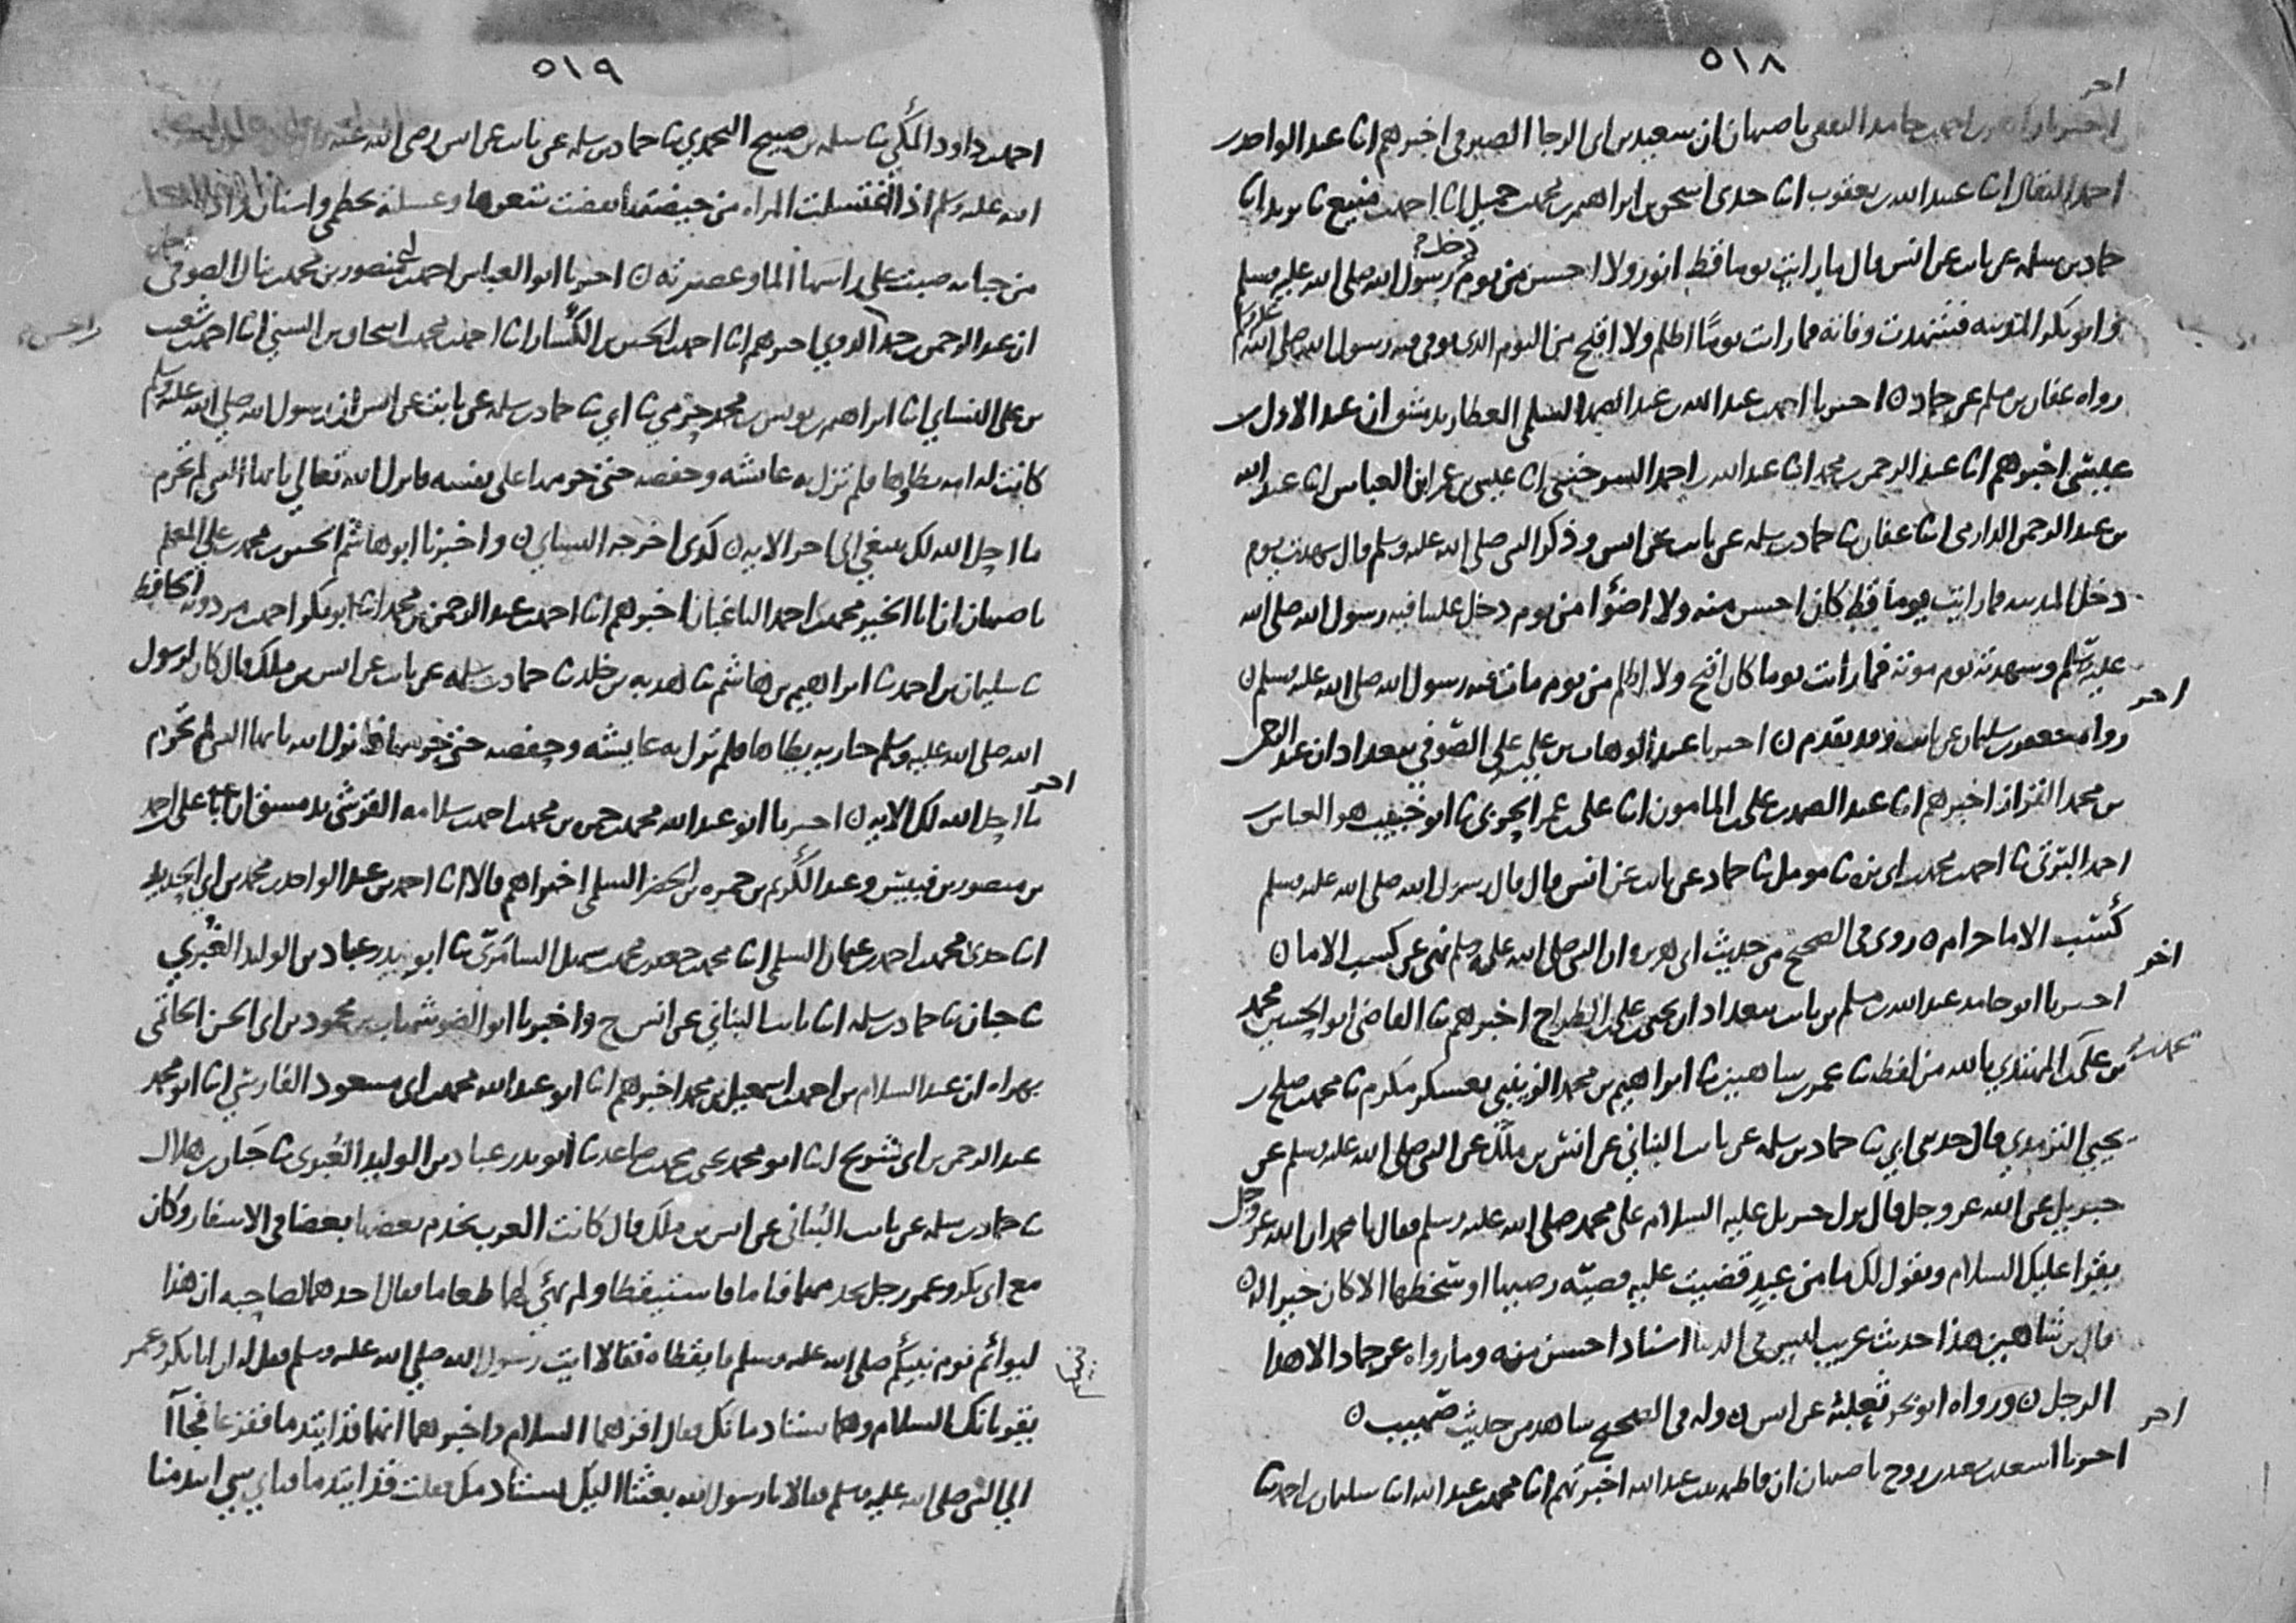 ٥١٨
اخر
اخبرنا احمد حامد الثقفي باصبهان ان سعيد بن ابي الرجا الصيرفي اخبرهم انا عبد الواحد بن
احمد البقال انا عبيد الله بن يعقوب انا جدي اسحق بن ابراهيم بن محمد بن جميل انا احمد بن منيع نا يزيد انا
حماد بن سلمه عن ثابت عن انس قال ما رايت يوما قط انور ولا احسن من يوم دخل رسول الله صلى الله عليه وسلم
وابو بكر المدينه فشهدت وفاته فما رايت يوما اظلم ولا اقبح من اليوم الذي توفي فيه رسول الله صلى الله عليه وسلم
رواه عفان بن مسلم عن حماد ن اخبرنا احمد بن عبد الله بن عبد الصمد السلمي العطار بدمشق ان عبد الاول بن
عيسى اخبرهم انا عبد الرحمن بن محمد انا عبد الله بن احمد السرخسي انا عيسى بن عمر ابن العباس انا عبد الله
بن عبد الرحمن الدارمي انا عفان نا حماد بن سلمه عن ثابت عن انس وذكر النبي صلى الله عليه وسلم قال شهدت يوم
دخل المدينه فما رايت يوما قط كان احسن منه ولا اضوا من يوم دخل علينا فيه رسول الله صلى الله
عليه وسلم وشهدته يوم موته فما رايت يوما كان اقبح ولا اظلم من يوم مات فيه رسول الله صلى الله عليه وسلم ن
اخر
رواه جعفر بن سليمان عن ثابت وقد تقدم ن اخبرنا عبد الوهاب بن علي بن علي الصوفي ببغداد ان عبد الرحمن
بن محمد القزاز اخبرهم انا عبد الصمد بن علي المامون انا علي بن عمر الحربي نا ابو خبيب هو العباس بن
احمد البرتي نا احمد بن محمد بن ابي بزه نا مومل نا حماد عن ثابت عن انس قال قال رسول الله صلى الله عليه وسلم
كسب الاما حرام ن روي في الصحيح من حديث ابي هريره ان النبي صلى الله عليه وسلم نهى عن كسب الاما ن
اخر
اخبرنا ابو حامد عبد الله بن مسلم بن ثابت ببغداد ان يحيى بن علي بن الطراح اخبرهم نا القاضي ابو الحسين محمد
بن علي بن المهتدي بالله من لفظه نا عمر بن شاهين نا ابراهيم بن محمد الزينبي بعسكر مكرم نا محمد بن صلح بن
يحيى الترمذي قال حدثني ابي نا حماد بن سلمه عن ثابت البناني عن انس بن ملك عن النبي صلى الله عليه وسلم عن
جبريل عن الله عز وجل قال نزل جبريل عليه السلام على محمد صلى الله عليه وسلم فقال يا محمد ان الله عز وجل
يقرا عليك السلام ويقول لك ما من عبد قضيت عليه قضيه رضيها او سخطها الا كان خيرا له ن
قال بن شاهين هذا حديث غريب ليس في الدنيا اسناد احسن منه وما رواه عن حماد الا هذا
الرجل ن ورواه ابو بحر ثعلبه عن انس ن وله في الصحيح شاهد من حديث صهيب ن
اخر
اخبرنا اسعد بن سعيد بن روح باصبهان ان فاطمه بنت عبد الله اخبرتهم انا محمد بن عبد الله انا سليمان بن احمد نا
٥١٩
احمد بن داود المكي نا سلمه بن صبيح اليحمدي نا حماد بن سلمه عن ثابت عن انس رضي الله عنه
الله عليه وسلم اذا اغتسلت المراه من حيضتها نقضت شعرها وغسلته بخطمي واشنان واذا
من جنابه صبت على راسها الما وعصرته ن اخبرنا ابو العباس احمد بن ابي منصور بن محمد بن ينال الصوفي
ان عبد الرحمن بن حمد الدوني اخبرهم انا احمد بن الحسين الكسار انا احمد بن محمد بن اسحاق بن السني انا احمد بن شعيب
بن علي النسائي انا ابراهيم بن يونس بن محمد حرمي نا ابي نا حماد بن سلمه عن ثابت عن انس ان رسول الله صلى الله عليه وسلم
كانت له امه يطاوها فلم تزل به عائشه وحفصه حتى حرمها على نفسه فانزل الله تعالى يا ايها النبي لم تحرم
ما احل الله لك تبتغي الى اخر الايه ن كذى اخرجه النسائي ن واخبرنا ابو هاشم الحسين بن محمد بن علي المعلم
باصبهان ان ابا الخير محمد بن احمد الباغبان اخبرهم انا احمد بن عبد الرحمن بن محمد انا ابو بكر احمد بن مردويه الحافظ
نا سليمان بن احمد نا ابراهيم بن هاشم نا هدبه بن خلد نا حماد بن سلمه عن ثابت عن انس بن ملك قال كان لرسول
الله صلى الله عليه وسلم جاريه يطاها فلم تزل به عايشه وحفصه حتى حرمها فانزل الله يا ايها النبي لم تحرم
اخر
ما احل الله لك الايه ن اخبرنا ابو عبد الله محمد بن حمزه بن محمد بن احمد بن سلامه القرشي بدمشق ان ابا علي احمد
بن منصور بن قبيس وعبد الكريم بن حمزه بن الخضر السلمي اخبراهم قالا انا احمد بن عبد الواحد بن محمد بن ابي الحديد
انا جدي محمد بن احمد بن عثمان السلمي انا محمد بن جعفر بن محمد بن سهل السامري نا ابو بدر عباد بن الوليد الغبري
نا حبان نا حماد بن سلمه انا ثابت البناني عن انس ح واخبرنا ابو الضو شهاب بن محمود بن ابي الحسن الحاتمي
بهراه ان عبد السلام بن احمد بن اسمعيل بن محمد اخبرهم انا ابو عبد الله محمد بن ابي مسعود الفارسي انا ابو محمد
عبد الرحمن بن ابي شريح انا ابو محمد يحيى بن محمد بن صاعد نا ابو بدر عباد بن الوليد الغبري نا حبان بن هلال
نا حماد بن سلمه عن ثابت البناني عن انس بن ملك قال كانت العرب يخدم بعضها بعضا في الاسفار وكان
مع ابي بكر وعمر رجل يخدمهما فناما فاستيقظا ولم يهيئ لهما طعاما فقال احدهما لصاحبه ان هذا
ليوائم نوم نبيكم صلى الله عليه وسلم فايقظاه فقالا ايت رسول الله صلى الله عليه وسلم فقل له ان ابا بكر وعمر
يقريانك السلام وهما يستادمانك فقال اقرهما السلام واخبرهما انهما قد ايتدما ففزعا فجاآ
الى النبي صلى الله عليه وسلم فقالا يا رسول الله بعثنا اليك نستادمك فقلت قد ايتدما فباي شي ايتدمنا